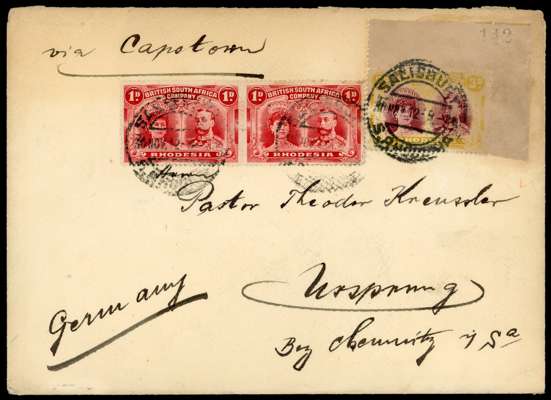 via Capetown
132
1D BRITISH SOUTH AFRICA COMPANY 1D
RHODESIA
1D BRITISH SOUTH AFRICA COMPANY 1D
RHODESIA
SALISBURY
Herrn
Pastor Theodor Kreussler
Germany
Ursprung
Bez Chemnitz i/Sa